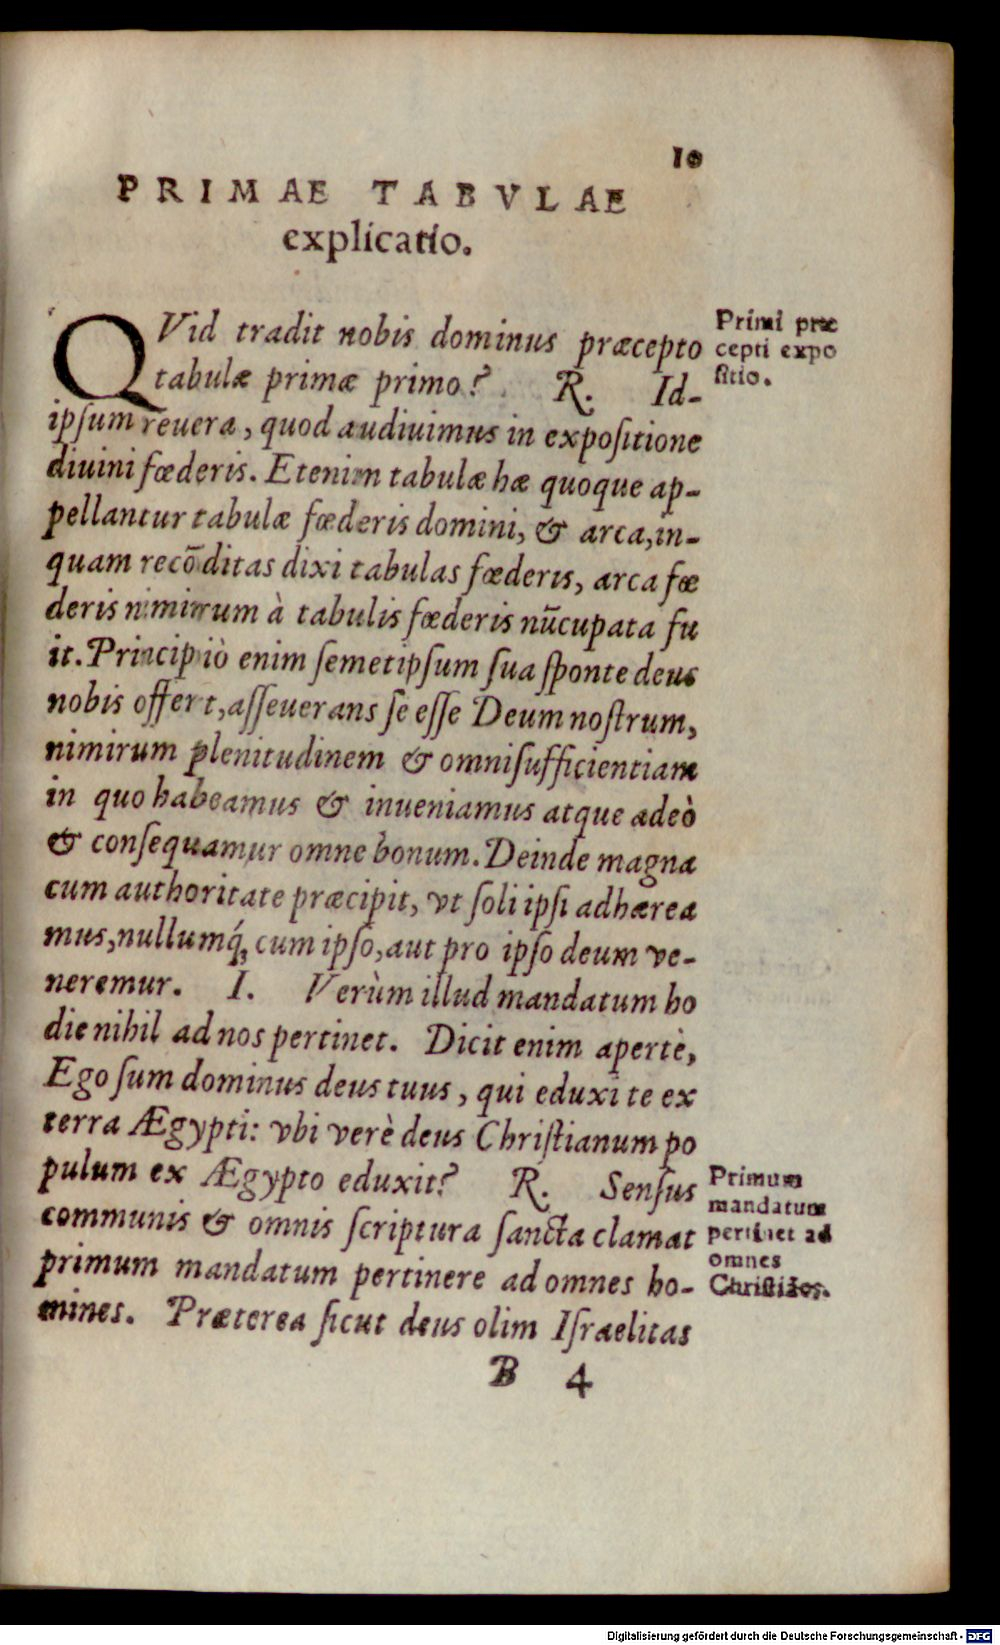 10
PRIMAE TABVLAE
explicatio.
QVid tradit nobis dominus præcepto
tabulæ primæ primo? R. Id-
ipſum reuera, quod audiuimus in expoſitione
diuini fœderis. Etenim tabulæ hæ quoque ap-
pellantur tabulæ fœderis domini, & arca, in-
quam recõditas dixi tabulas fœderis, arca fœ
deris nimirum à tabulis fœderis nũcupata fu
it. Principiò enim ſemetipſum ſua ſponte deus
nobis offert, aſſeuerans ſe eſſe Deum noſtrum,
nimirum plenitudinem & omniſufficientiam
in quo habeamus & inueniamus atque adeò
& conſequamur omne bonum. Deinde magna
cum authoritate præcipit, vt ſoli ipſi adhærea
mus, nullumq́; cum ipſo, aut pro ipſo deum ve-
neremur. I. Verùm illud mandatum ho
die nihil ad nos pertinet. Dicit enim apertè,
Ego ſum dominus deus tuus, qui eduxi te ex
terra Ægypti: vbi verè deus Chriſtianum po
pulum ex Ægypto eduxit? R. Senſus
communis & omnis ſcriptura ſancta clamat
primum mandatum pertinere ad omnes ho-
mines. Præterea ſicut deus olim Iſraelitas
B 4
Primi præ
cepti expo
ſitio.
Primum
mandatum
pertinet ad
omnes
Chriſtiãos.
Digitalisierung gefördert durch die Deutsche Forschungsgemeinschaft - DFG